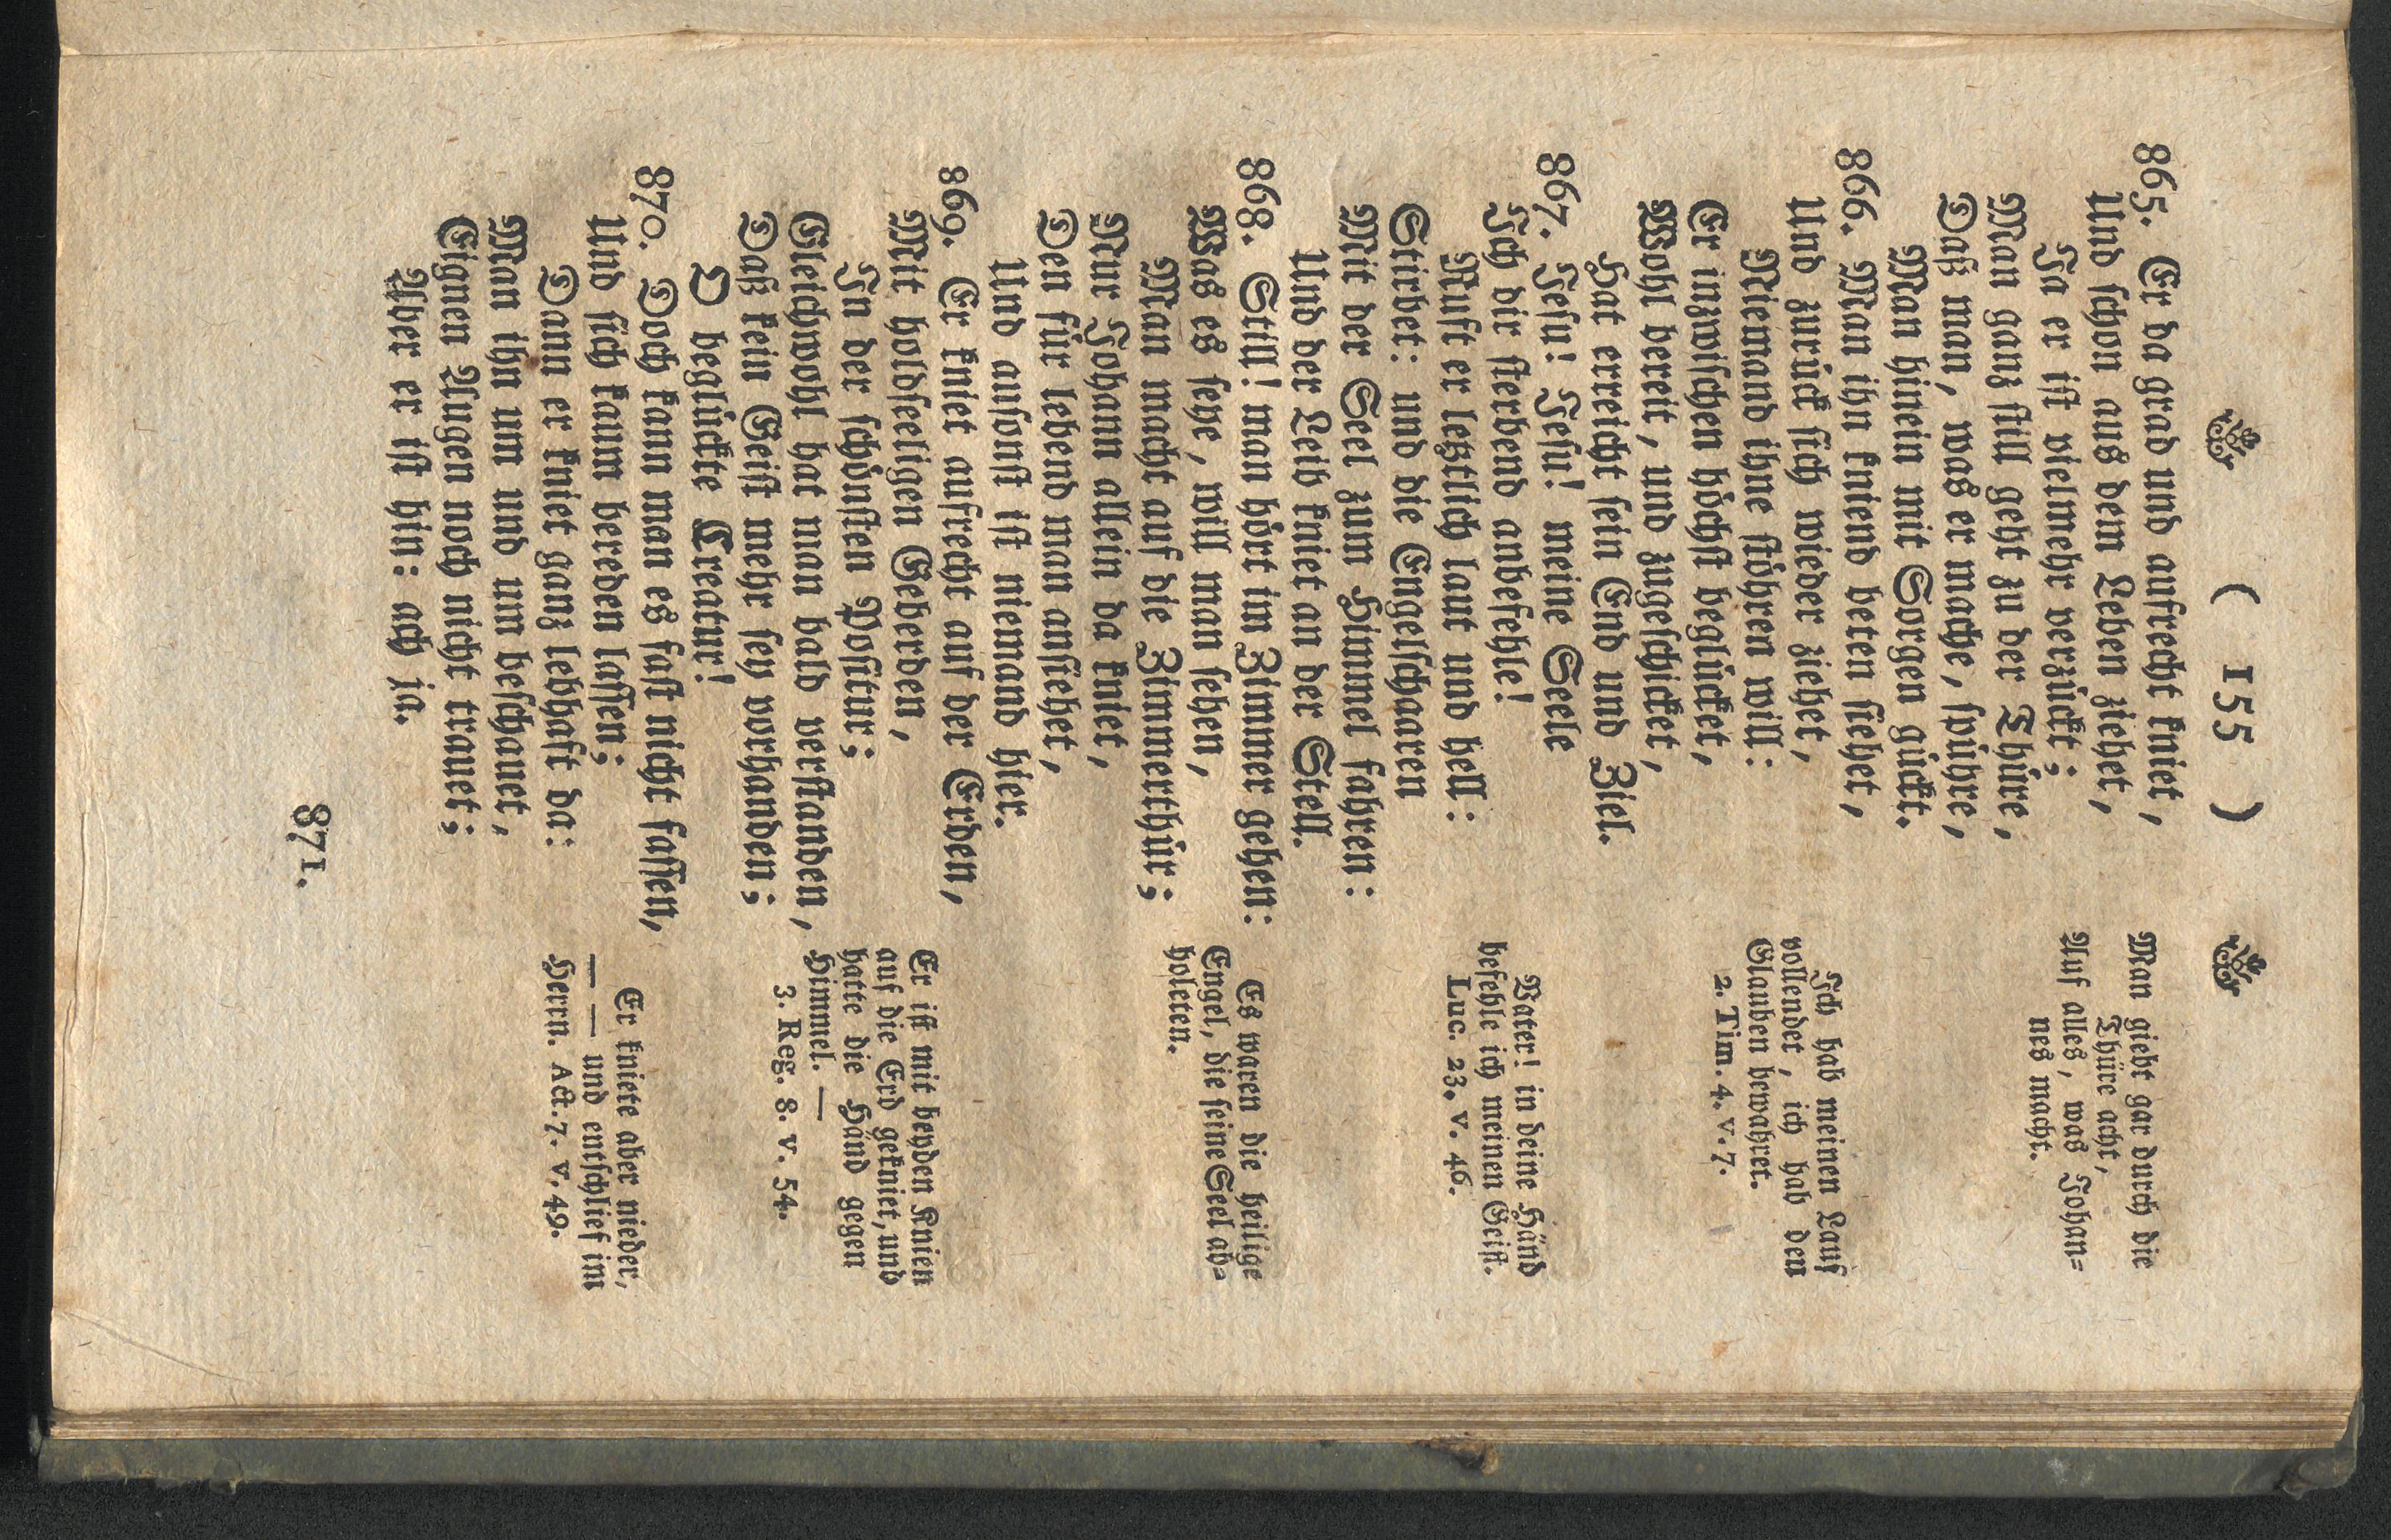 ( 155 )
865. Er da grad und aufrecht kniet,
Und schon aus dem Leben ziehet,
Ja er ist vielmehr verzückt;
Man ganz still geht zu der Thüre,
Daß man, was er mache, spühre,
Man hinein mit Sorgen gückt.
866. Man ihn kniend beten siehet,
Und zurück sich wieder ziehet,
Niemand ihne stöhren will:
Er inzwischen höchst beglücket,
Wohl bereit, und zugeschicket,
Hat erreicht sein End und Ziel.
867. Jesu! Jesu! meine Seele
Ich dir sterbend anbefehle!
Ruft er leztlich laut und hell:
Stirbet: und die Engelschaaren
Mit der Seel zum Himmel fahren:
Und der Leib kniet an der Stell.
868. Still! man hört im Zimmer gehen:
Was es seye, will man sehen,
Man macht auf die Zimmerthür;
Nur Johann allein da kniet,
Den für lebend man ansiehet,
Und ausonst ist niemand hier.
869. Er kniet aufrecht auf der Erden,
Mit holdseeligen Geberden,
In der schönsten Positur;
Gleichwohl hat man bald verstanden,
Daß kein Geist mehr sey vorhanden;
O beglückte Creatur!
870. Doch kann man es fast nicht fassen,
Und sich kaum bereden lassen;
Dann er kniet ganz lebhaft da:
Man ihn um und um beschauet,
Eignen Augen noch nicht trauet;
Aber er ist hin: ach ja.
Man giebt gar durch die
Thüre acht,
Auf alles, was Johan=
nes macht.
Ich hab meinen Lauf
vollendet, ich hab den
Glauben bewahret.
2. Tim. 4. v. 7.
Vater! in deine Händ
befehle ich meinen Geist.
Luc. 23. v. 46.
Es waren die heilige
Engel, die seine Seel ab=
holeten.
Er ist mit beyden Knien
auf die Erd gekniet, und
hatte die Händ gegen
Himmel. —
3. Reg. 8. v. 54.
Er kniete aber nieder,
— — und entschlief im
Herrn. Act. 7. v. 49.
871.